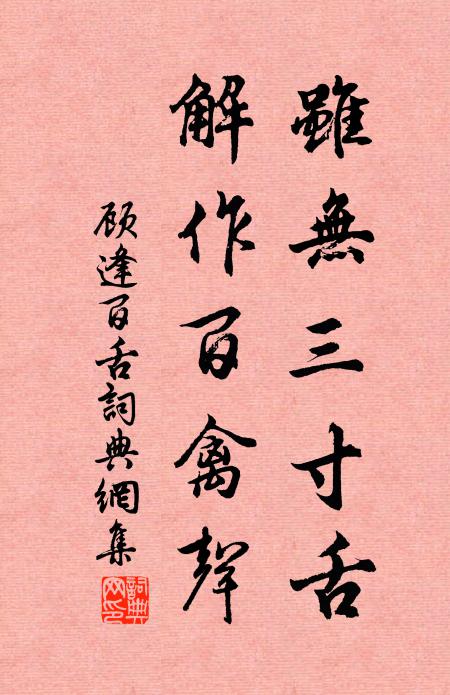 雖無三寸舌
解作百禽聲
顾逢百舌詞典網集
詞典網印